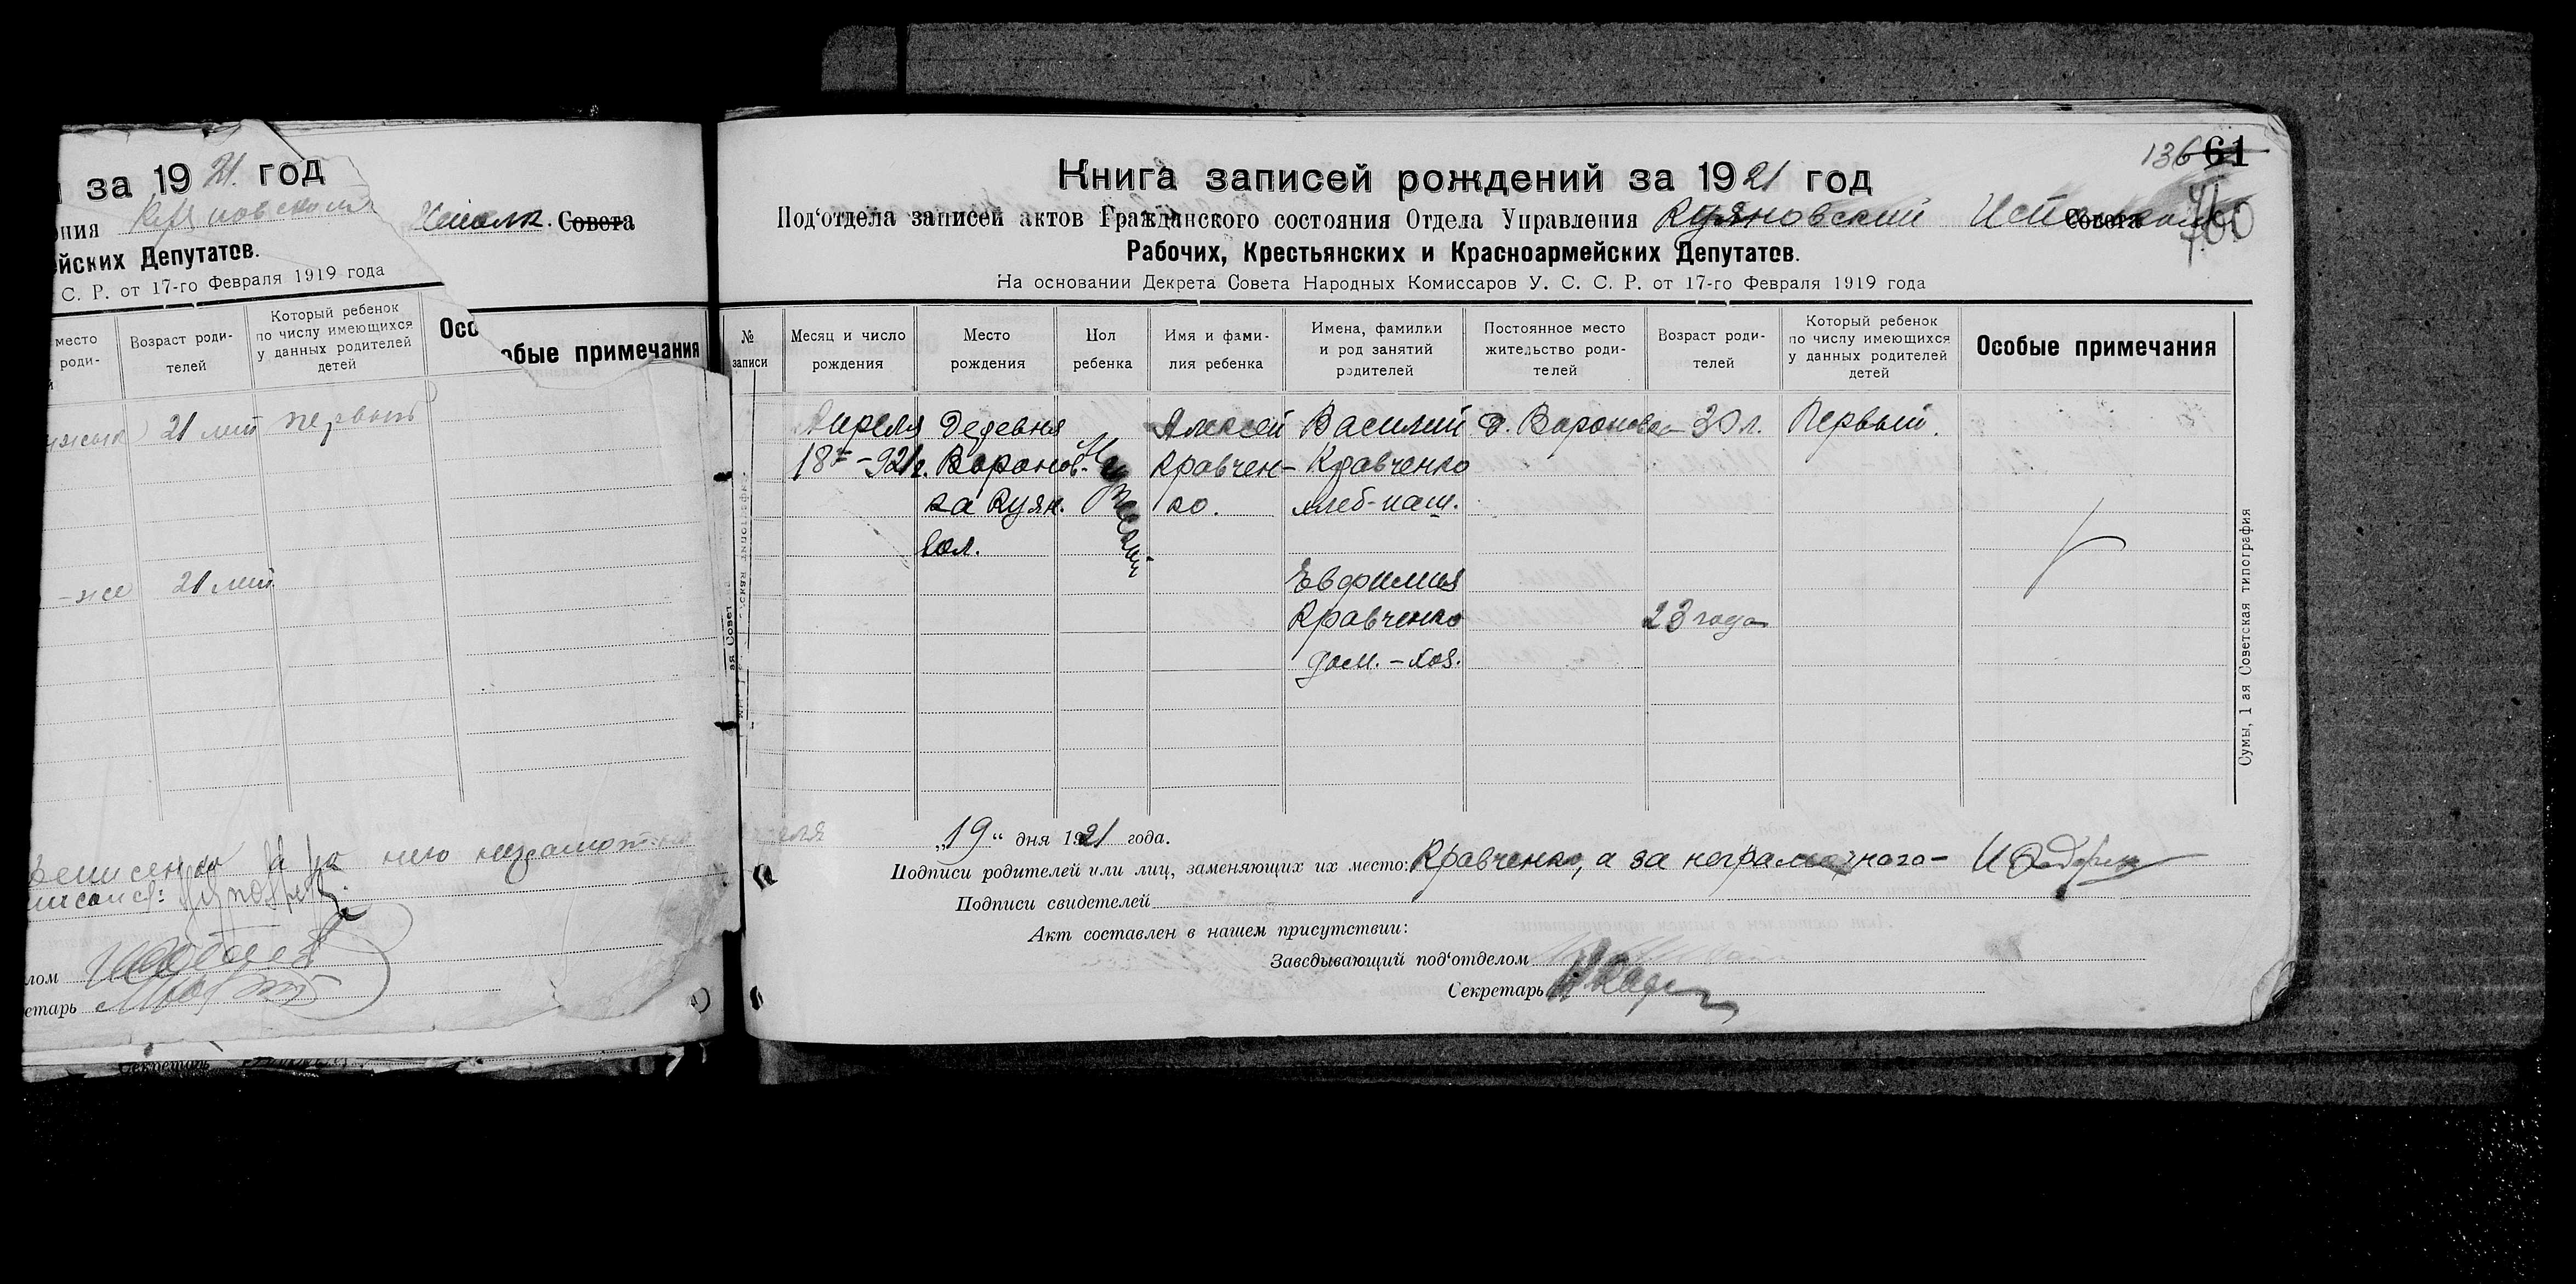 за 1921. год
ния Куяновского Исполк. Совета
ейских Депутатов.
С. Р. от 17-го Февраля 1919 года
место
роди-
Возраст роди-
телей
Который ребенок
по числу имеющихся
у данных родителей
детей
Осо
обые примечания
21 лет первый
-же 21 лет
лом
етарь
Секретарь
136 61
Книга записей рождений за 1921 год
Под‘отдела записей актов Гражданского состояния Отдела Управления Куяновский Исполком Совета
Рабочих, Крестьянских и Красноармейских Депутатов.
На основании Декрета Совета Народных Комиссаров У. С. С. Р. от 17-го Февраля 1919 года
№
записи
Месяц и число
рождения
Место
рождения
Пол
ребенка
Имя и фами-
лия ребенка
Имена, фамилии
и род занятий
родителей
Постоянное место
жительство роди-
телей
Возраст роди-
телей
Который ребенок
по числу имеющихся
у данных родителей
детей
Особые примечания
Апреля
18го-921г.
Деревня
Воронов-
ка Куян.
вол.
Мужской
Алексей
Кравчен-
ко.
Василий
Кравченко
хлеб-паш.
Евфимия
Кравченко
дом.-хоз.
д. Вороновка
30 л.
23 года
Первый.
„19“ дня 1921 года.
Подписи родителей или лиц, заменяющих их место: Кравченко, а за неграмотного-
Подписи свидетелей
Акт составлен в нашем присутствии:
Заведывающий под‘отделом
Секретарь
Сумы, 1 ая Советская типография